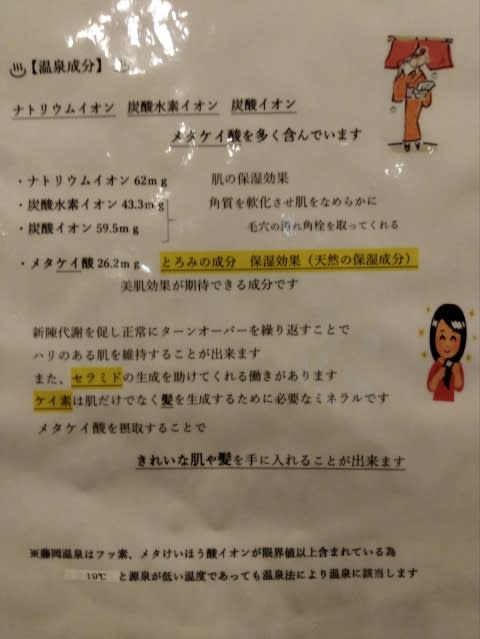 ♨【温泉成分】♨
ナトリウムイオン 炭酸水素イオン 炭酸イオン
メタケイ酸を多く含んでいます
・ナトリウムイオン 62mg 肌の保湿効果
・炭酸水素イオン 43.3mg 角質を軟化させ肌をなめらかに
・炭酸イオン 59.5mg 毛穴の汚れ角栓を取ってくれる
・メタケイ酸 26.2mg とろみの成分 保湿効果（天然の保湿成分）
美肌効果が期待できる成分です
新陳代謝を促し正常にターンオーバーを繰り返すことで
ハリのある肌を維持することが出来ます
また、セラミドの生成を助けてくれる働きがあります
ケイ素は肌だけでなく髪を生成するために必要なミネラルです
メタケイ酸を摂取することで
きれいな肌や髪を手に入れることが出来ます
※藤岡温泉はフッ素、メタけいほう酸イオンが限界値以上含まれている為
19℃ と源泉が低い温度であっても温泉法により温泉に該当します